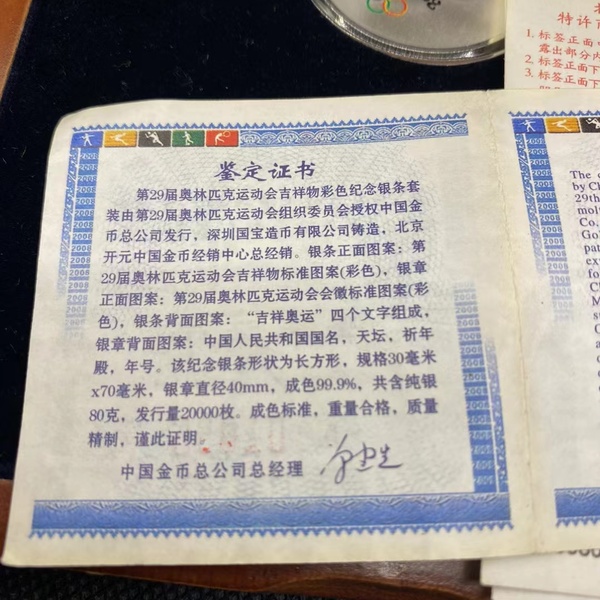 鉴定证书
第29届奥林匹克运动会吉祥物彩色纪念银条套
装由第29届奥林匹克运动会组织委员会授权中国金
币总公司发行，深圳国宝造币有限公司铸造，北京
开元中国金币经销中心总经销。银条正面图案：第
29届奥林匹克运动会吉祥物标准图案(彩色)，银章
正面图案：第29届奥林匹克运动会会徽标准图案(彩
色)，银条背面图案：“吉祥奥运”四个文字组成，
银章背面图案：中国人民共和国国名，天坛，祈年
殿，年号。该纪念银条形状为长方形，规格30毫米
x70毫米，银章直径40mm，成色99.9%，共含纯银
80克，发行量20000枚。成色标准，重量合格，质量
精制，谨此证明。
中国金币总公司总经理
The
by Ch
29th
Co.
特许
1. 标签正面
露出部分内
2. 标签正面下
3. 标签正面下